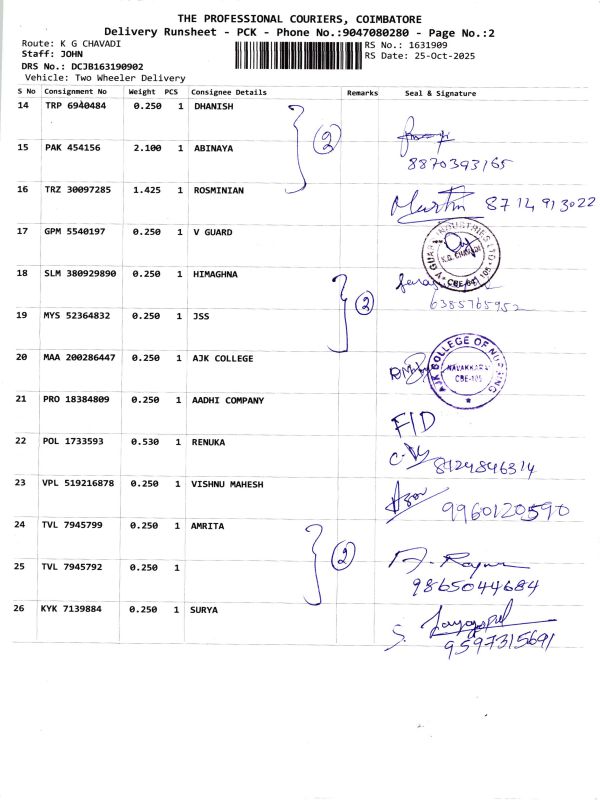 THE PROFESSIONAL COURIERS, COIMBATORE
Delivery Runsheet - PCK - Phone No.:9047080280 - Page No.:2
Route: K G CHAVADI
RS No.: 1631909
Staff: JOHN
RS Date: 25-Oct-2025
DRS No.: DCJB163190902
Vehicle: Two Wheeler Delivery
S No Consignment No Weight PCS Consignee Details Remarks Seal & Signature
14 TRP 6940484 0.250 1 DHANISH
2
15 PAK 454156 2.100 1 ABINAYA
8870393165
16 TRZ 30097285 1.425 1 ROSMINIAN
Martin 8714913022
17 GPM 5540197 0.250 1 V GUARD
V GUARD INDUSTRIES LTD
K.G. CHAVADI
CBE-641 105
18 SLM 380929890 0.250 1 HIMAGHNA
2
6385765952
19 MYS 52364832 0.250 1 JSS
20 MAA 200286447 0.250 1 AJK COLLEGE
AJK COLLEGE OF NURSING
NAVAKKARAI
CBE-105
21 PRO 18384809 0.250 1 AADHI COMPANY
F/D
22 POL 1733593 0.530 1 RENUKA
8124846314
23 VPL 519216878 0.250 1 VISHNU MAHESH
9960120590
24 TVL 7945799 0.250 1 AMRITA
2
25 TVL 7945792 0.250 1
9865044684
26 KYK 7139884 0.250 1 SURYA
S. Jayagopal
9597315691